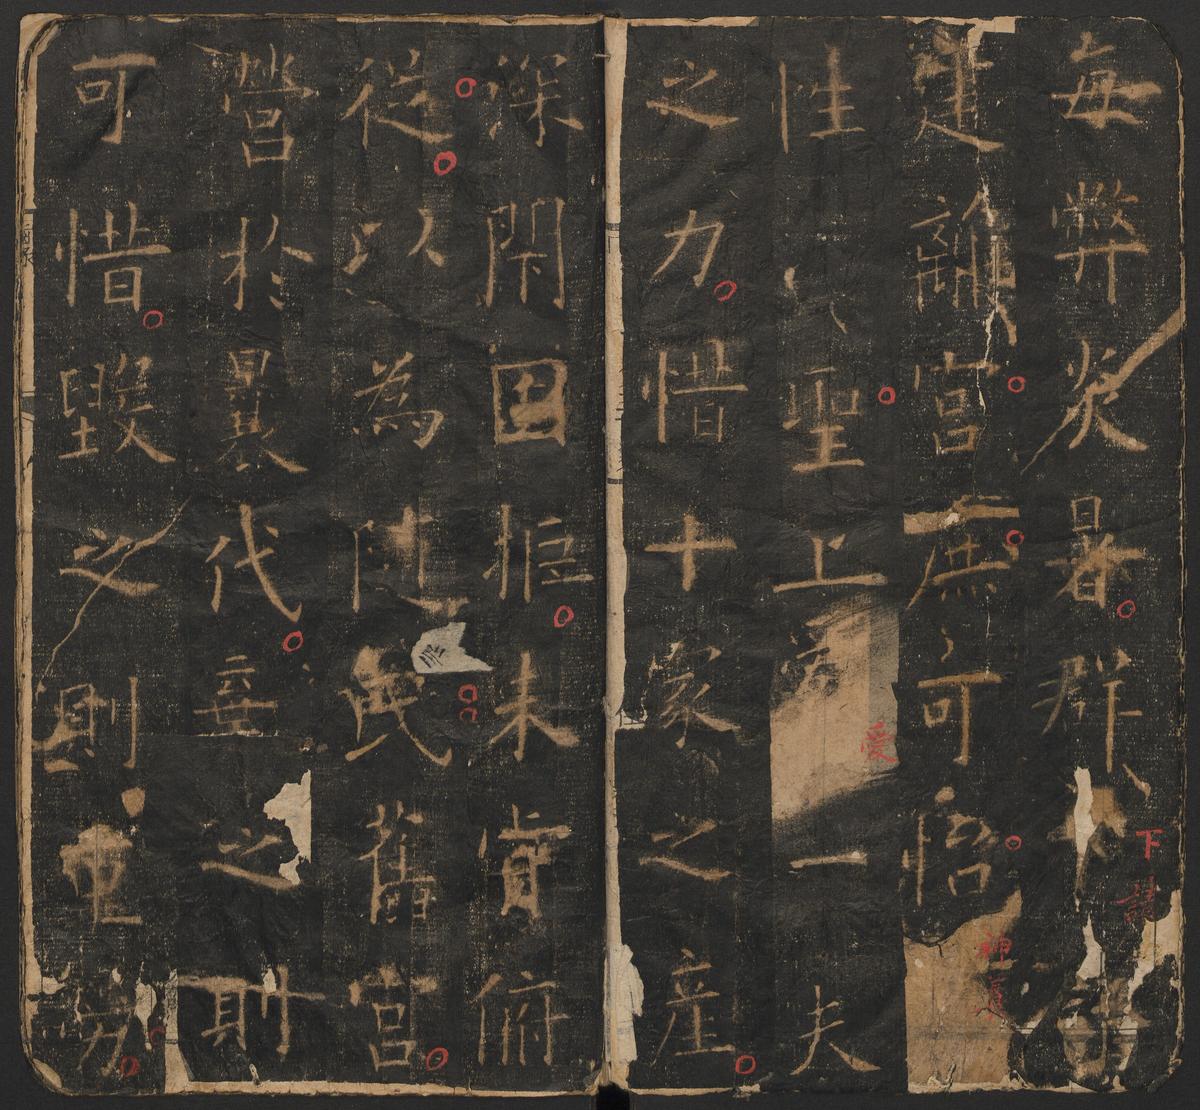 每弊炎暑群下請
下請
建離宮庶可怡
神養
性聖上愛一夫
愛
之力惜十家之產
深閇固拒未肯俯
從以為隋氏舊宮
營於曩代棄之則
可惜毀之則重勞